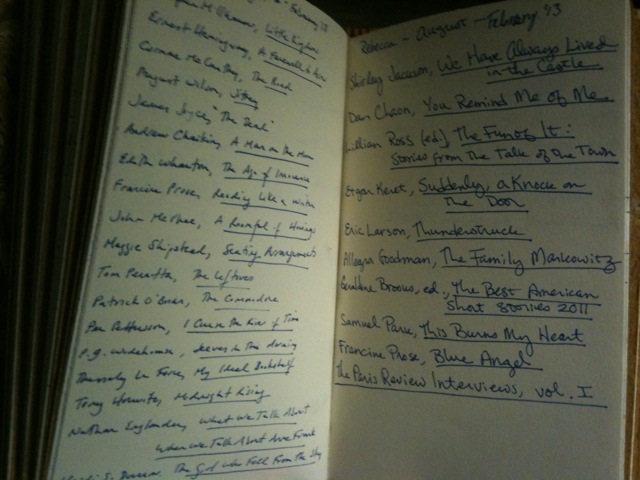 February '13
Little Kingdoms
Ernest Hemingway, A Farewell to Arms
Cormac McCarthy, The Road
August Wilson, Jitney
James Joyce, "The Dead"
Andrew Chaikin, A Man on the Moon
Edith Wharton, The Age of Innocence
Francine Prose, Reading Like a Writer
John McPhee, A Roomful of Hovings
Maggie Shipstead, Seating Arrangements
Tom Perrotta, The Leftovers
Patrick O'Brian, The Commodore
Per Petterson, I Curse the River of Time
P.G. Wodehouse, Jeeves in the Morning
Thessaly La Force, My Ideal Bookshelf
Tony Horwitz, Midnight Rising
Nathan Englander, What We Talk About
When We Talk About Anne Frank
The Girl Who Fell From the Sky
Rebecca - August - February '13
Shirley Jackson, We Have Always Lived
in the Castle
Dan Chaon, You Remind Me of Me
Lillian Ross (ed.), The Fun of It:
Stories from The Talk of the Town
Etgar Keret, Suddenly, a Knock on
The Door
Eric Larson, Thunderstruck
Allegra Goodman, The Family Markowitz
Geraldine Brooks, ed., The Best American
Short Stories 2011
Samuel Park, This Burns My Heart
Francine Prose, Blue Angel
The Paris Review Interviews, vol. I